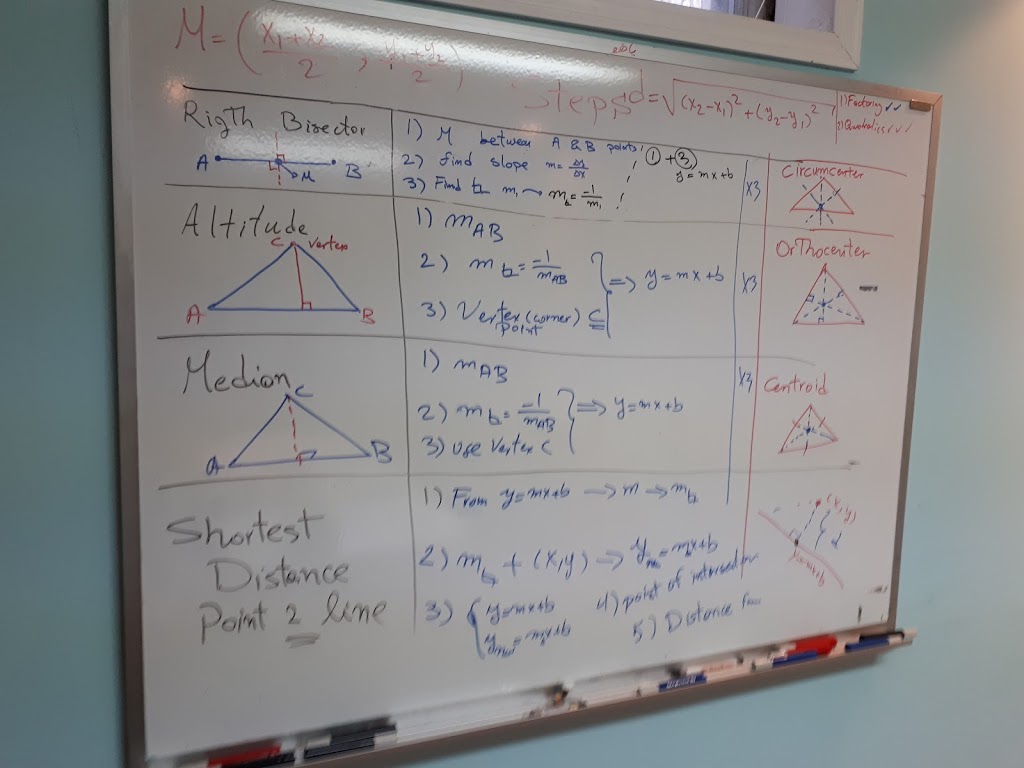 M = (x₁+x₂/2 , y₁+y₂/2)
Steps
d=√(x₂-x₁)²+(y₂-y₁)²
1) Factoring ✓✓
2) Quadratics ✓✓✓
Rigth Bisector
A M B
1) M between A & B points
2) find slope m=Δy/Δx
3) Find ⊥ m₁→m⊥=-1/m₁
①+③
y=mx+b
X3
Circumcenter
Altitude
C Vertex
A B
1) mAB
2) m⊥=-1/mAB
3) Vertex (corner) C
point
⇒ y=mx+b
X3
Orthocenter
H
Medion
C
A B
1) mAB
2) m⊥=-1/mAB
3) use Vertex C
⇒ y=mx+b
X3
Centroid
Shortest
Distance
Point 2 line
1) From y=mx+b → m → m⊥
2) m⊥ + (x,y) → ynew=m⊥x+b
3) { y=mx+b
ynew=m⊥x+b
4) point of
5) Distance
(x,y)
d